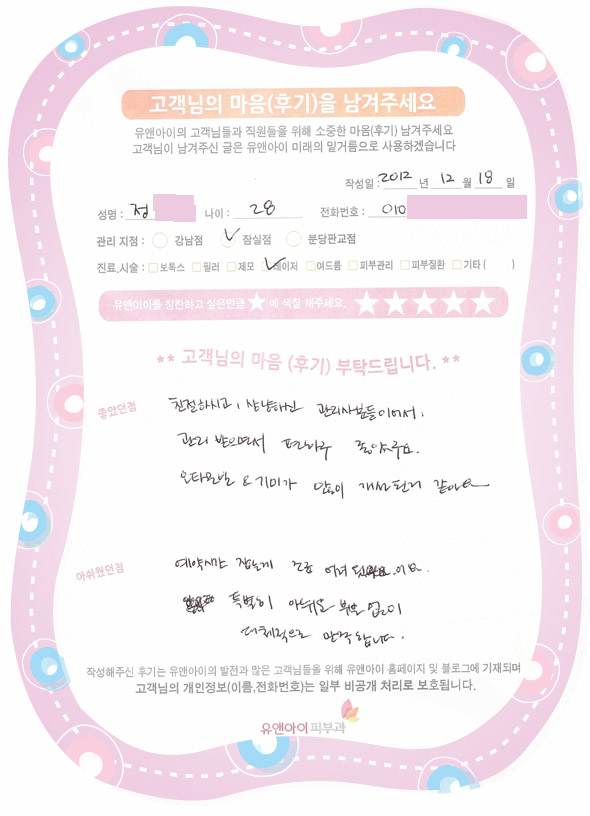 고객님의 마음(후기)을 남겨주세요
유앤아이의 고객님들과 직원들을 위해 소중한 마음(후기) 남겨주세요
고객님이 남겨주신 글은 유앤아이 미래의 밑거름으로 사용하겠습니다
작성일 : 2012 년 12 월 18 일
성명 : 정 나이 : 28 전화번호 : 010
관리 지점 : 강남점 잠실점 분당판교점
진료,시술 : 보톡스 필러 제모 레이저 여드름 피부관리 피부질환 기타 ( )
유앤아이를 칭찬하고 싶은만큼 ★ 에 색칠 해주세요. ★★★★★
** 고객님의 마음 (후기) 부탁드립니다. **
좋았던점
친절하시고, 상냥하신 관리사분들이어서,
관리 받으면서 편하구 좋았구요.
오타모반 & 기미가 많이 개선된거 같아요
아쉬웠던점
예약시간 잡는게 조금 어려 이요.
특별히 아쉬운 부분 없이
대체적으로 만족합니다.
작성해주신 후기는 유앤아이의 발전과 많은 고객님들을 위해 유앤아이 홈페이지 및 블로그에 기재되며
고객님의 개인정보(이름,전화번호)는 일부 비공개 처리로 보호됩니다.
유앤아이피부과